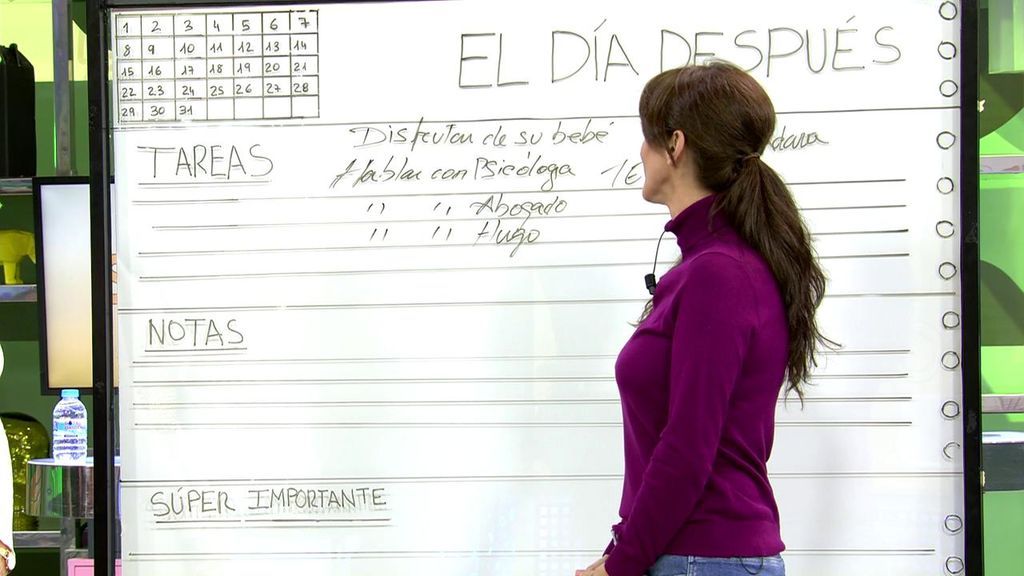 1 2 3 4 5 6 7
8 9 10 11 12 13 14
15 16 17 18 19 20 21
22 23 24 25 26 27 28
29 30 31
EL DÍA DESPUÉS
TAREAS
Disfrutar de su bebé
Hablar con Psicóloga
" " Abogado
" " Hugo
NOTAS
SÚPER IMPORTANTE